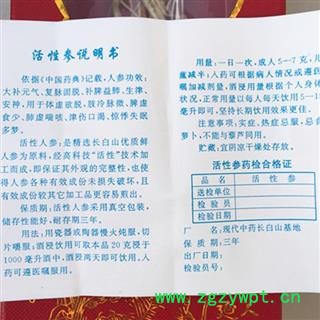 活性参说明书
依据《中国药典》记载，人参功效：
大补元气、复脉固脱、补脾益肺、生津、
安神，用于体虚欲脱、肢冷脉微、脾虚
食少、肺虚喘咳、津伤口渴、惊悸失眠
多梦。
活性人参：是精选长白山优质鲜
人参为原料，经高科技“活性”技术加
工而成，即保证其外观的完整性，也使
得人参各种有效成份未损失破坏，且
有效成份较其它加工品更容易煎出。
保质期：活性人参采用真空包装，
储存性能好，耐存期三年。
用法：用瓷器或陶器慢火炖服，切
片嚼服；酒浸饮用可取本品20克浸于
1000毫升酒中，酒浸两天即可饮用。入
药可遵医嘱服用。
用量：一日一次，成人5—7克，儿
童减半；入药可根据病人情况或遵医
嘱加减剂量，酒浸用量根据个人身体
状况，正常用量以每人每天饮用5—1
毫升即可，坚持长期饮用效果更佳。
注意事项：实热、热症忌服，忌食
萝卜，不能与藜芦同用。
贮藏：宜阴凉干燥处存放。
活性参药检合格证
品名 活性参
送检单位
检验员
检验日期
厂址：现代中药长白山基地
保质期：三年
出厂日期：
检验员号：
www.zgzywpt.cn